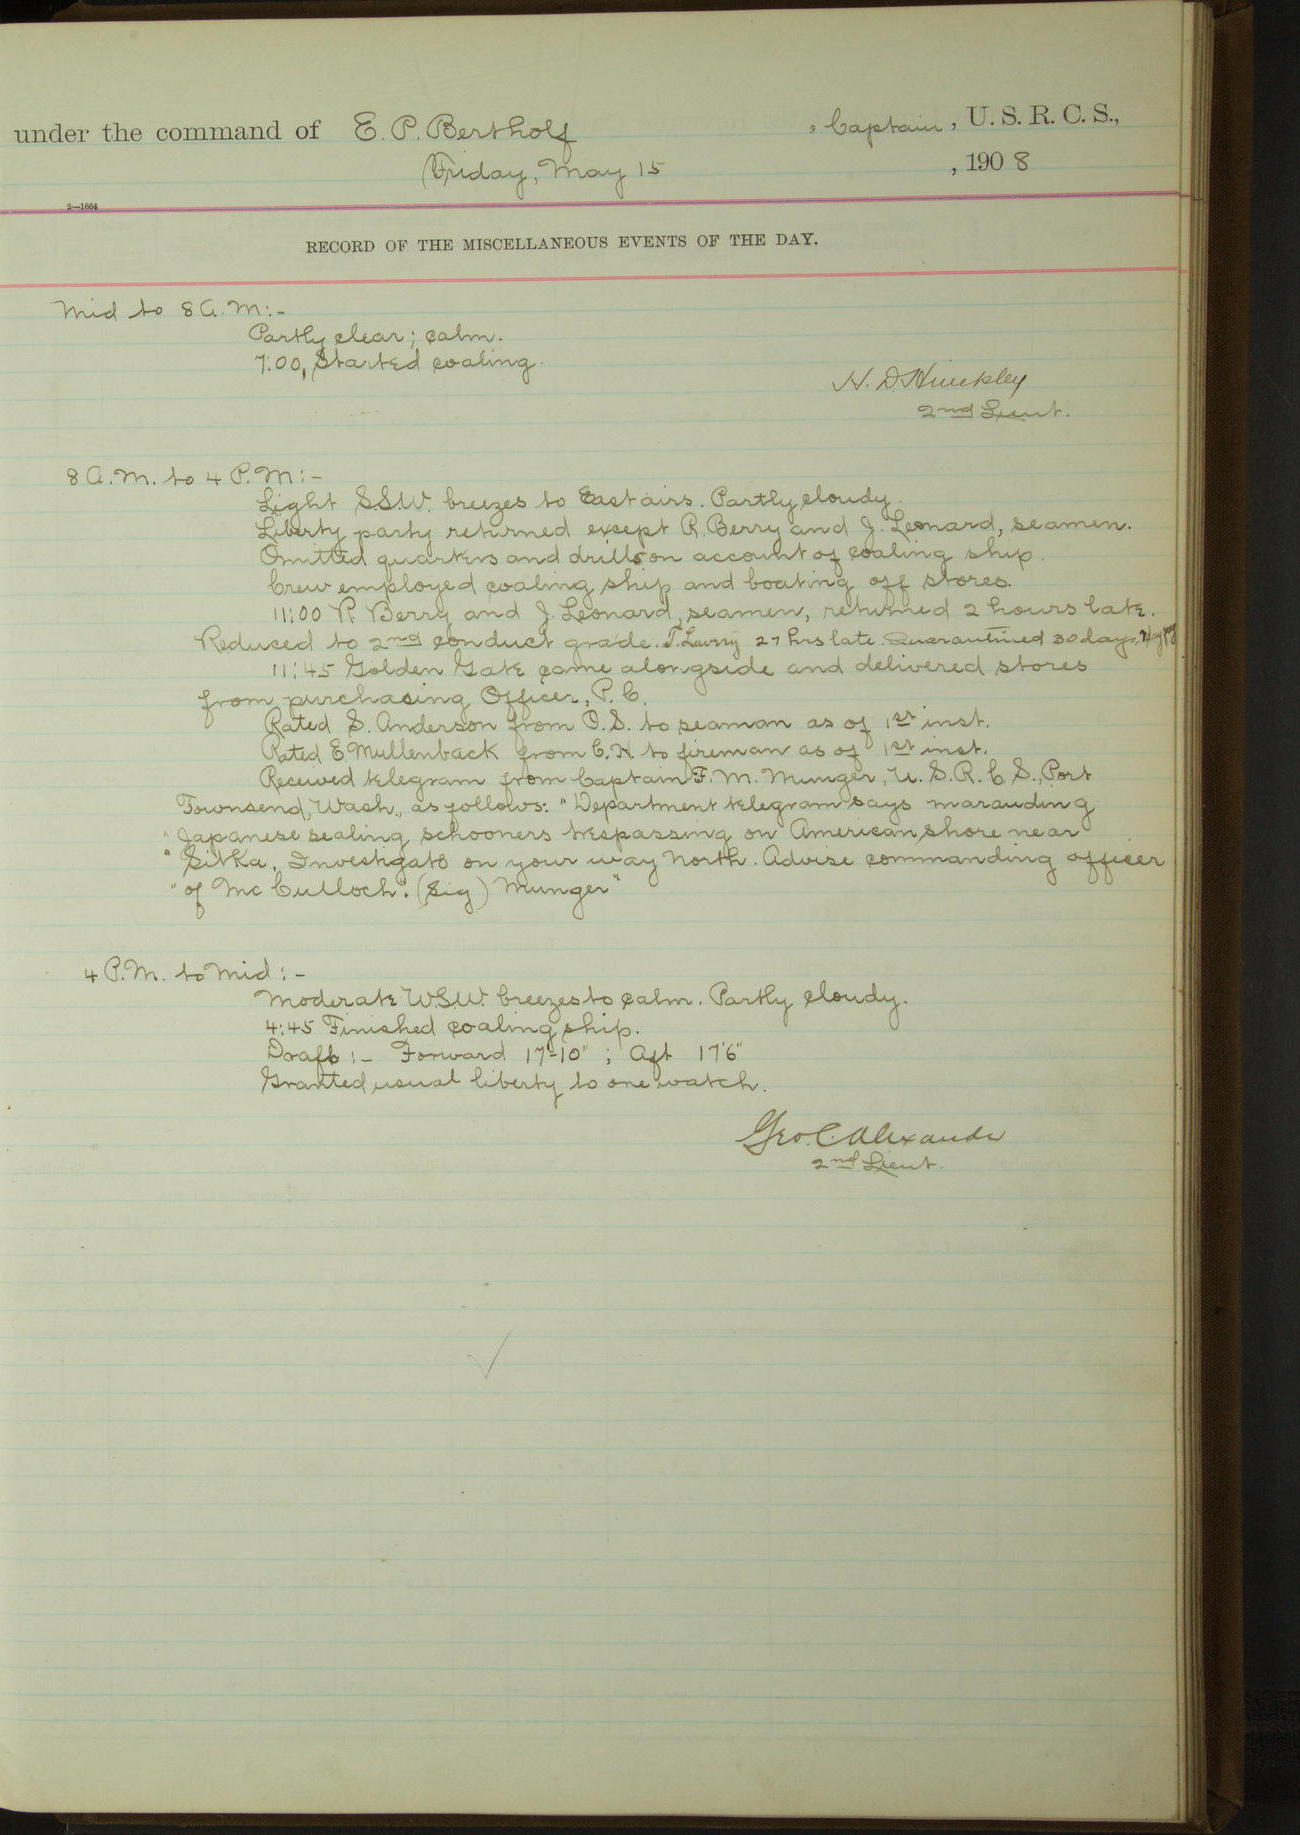 under the command of E. P. Bertholf , Captain, U. S. R. C. S.,
Friday, May 15 , 1908
2—1664
RECORD OF THE MISCELLANEOUS EVENTS OF THE DAY.
Mid to 8 A.M:-
Partly clear; calm.
7:00, Started coaling.
H. D. Hinckley
2nd Lieut.
8 A.M. to 4 P.M:-
Light S.S.W. breezes to East airs. Partly cloudy.
Liberty party returned except R. Berry and J. Leonard, seamen.
Omitted quarters and drills on account of coaling ship.
Crew employed coaling ship and boating off stores.
11:00 R Berry and J. Leonard, seamen, returned 2 hours late.
Reduced to 2nd conduct grade. T. Lavery 27 hrs late. Quarantined 30 days,
11:45 Golden Gate came alongside and delivered stores
from purchasing Officer, P. C.
Rated S. Anderson from O.S. to seaman as of 1st inst.
Rated E. Mullenback from C.H. to fireman as of 1st inst.
Received telegram from Captain F. M. Munger, U. S. R. C. S., Port
Townsend, Wash., as follows: "Department telegram says marauding
"Japanese sealing schooners trespassing on American shore near
"Sitka, Investigate on your way North. Advise commanding officer
"of McCulloch". (Sig) Munger"
4 P.M. to Mid:-
Moderate W.S.W. breezes to calm. Partly cloudy.
4:45 Finished coaling ship.
Draft:- Forward 17'-10"; Aft 17'6"
Granted usual liberty to one watch.
Geo. C. Alexander
2nd Lieut.